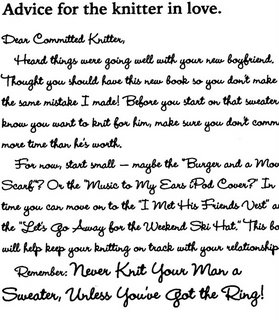 Advice for the knitter in love.
Dear Committed Knitter,
Heard things were going well with your new boyfriend.
Thought you should have this new book so you don't make
the same mistake I made! Before you start on that sweater
know you want to knit for him, make sure you don't comm
more time than he's worth.
For now, start small – maybe the "Burger and a Mov
Scarf"? Or the "Music to My Ears iPod Cover?" In
time you can move on to the "I Met His Friends Vest" a
the "Let's Go Away for the Weekend Ski Hat." This bo
will help keep your knitting on track with your relationship
Remember: Never Knit Your Man a
Sweater, Unless You've Got the Ring!